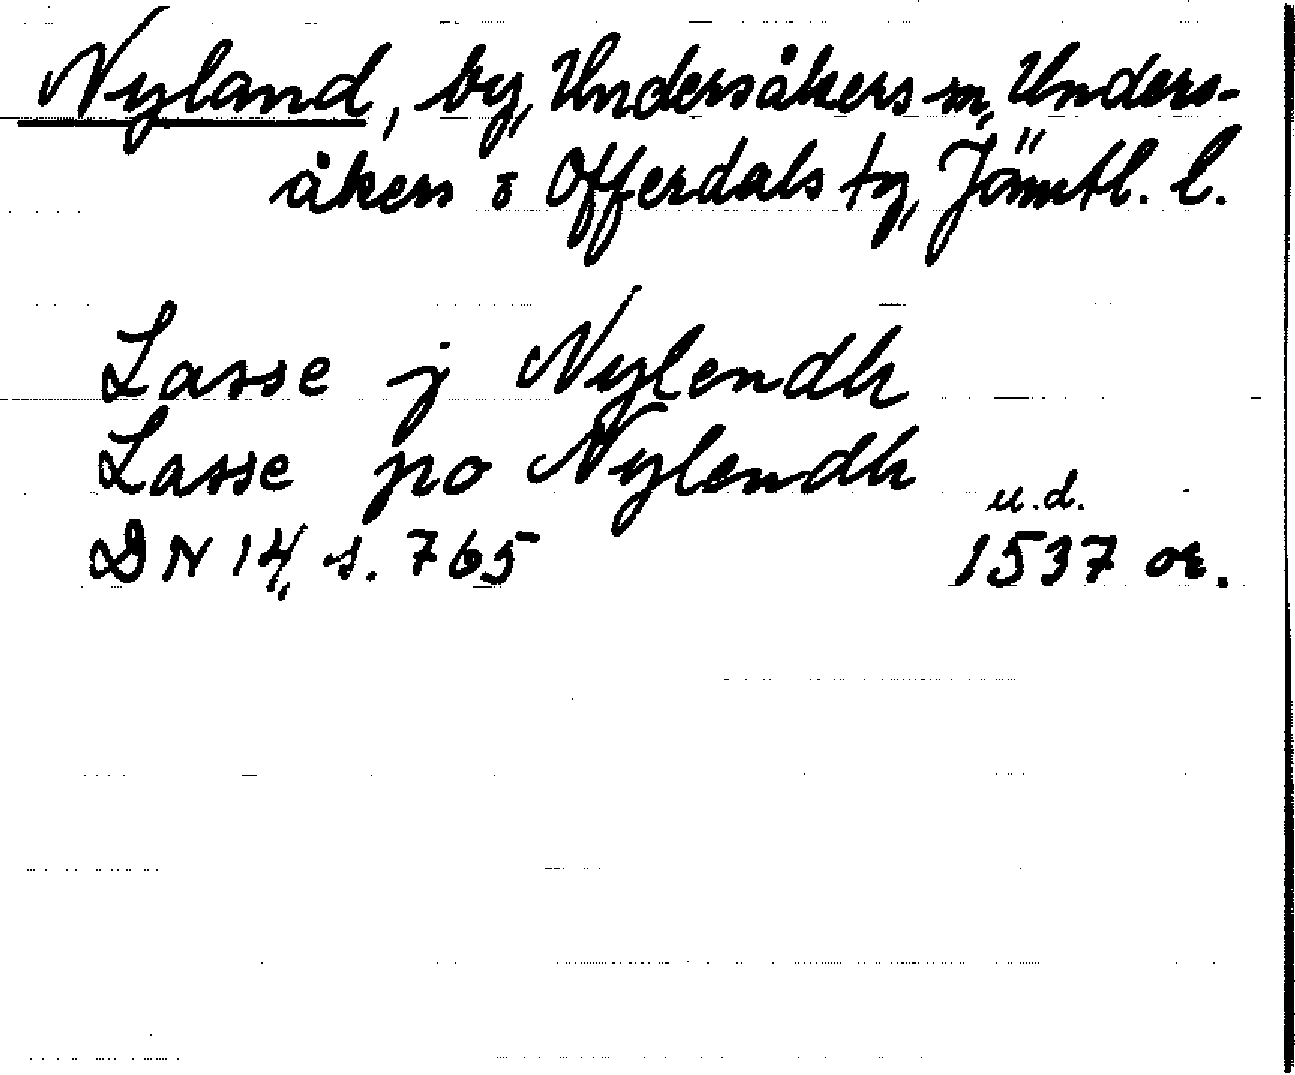 Nyland, by, Undersåkers sn, Unders-
åkers o Offerdals tg, Jämtl. l.
Lasse j Nylendh
Lasse po Nylendh
u.d.
DN 14, s. 765 1537 or.